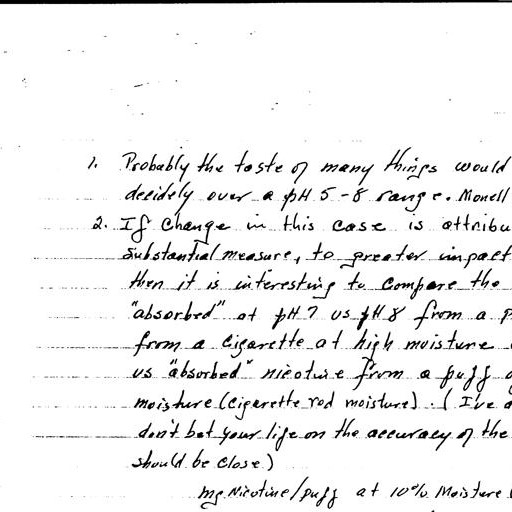 1. Probably the taste of many things would
decidely over a pH 5-8 range. Monell
2. If change in this case is attribu
substantial measure, to greater impact
then it is interesting to compare the
"absorbed" at pH 7 vs pH 8 from a p
from a cigarette at high moisture
vs "absorbed" nicotine from a puff
moisture (cigarette rod moisture). (I've
don't bet your life on the accuracy of the
should be close)
mg Nicotine/puff at 10% Moisture